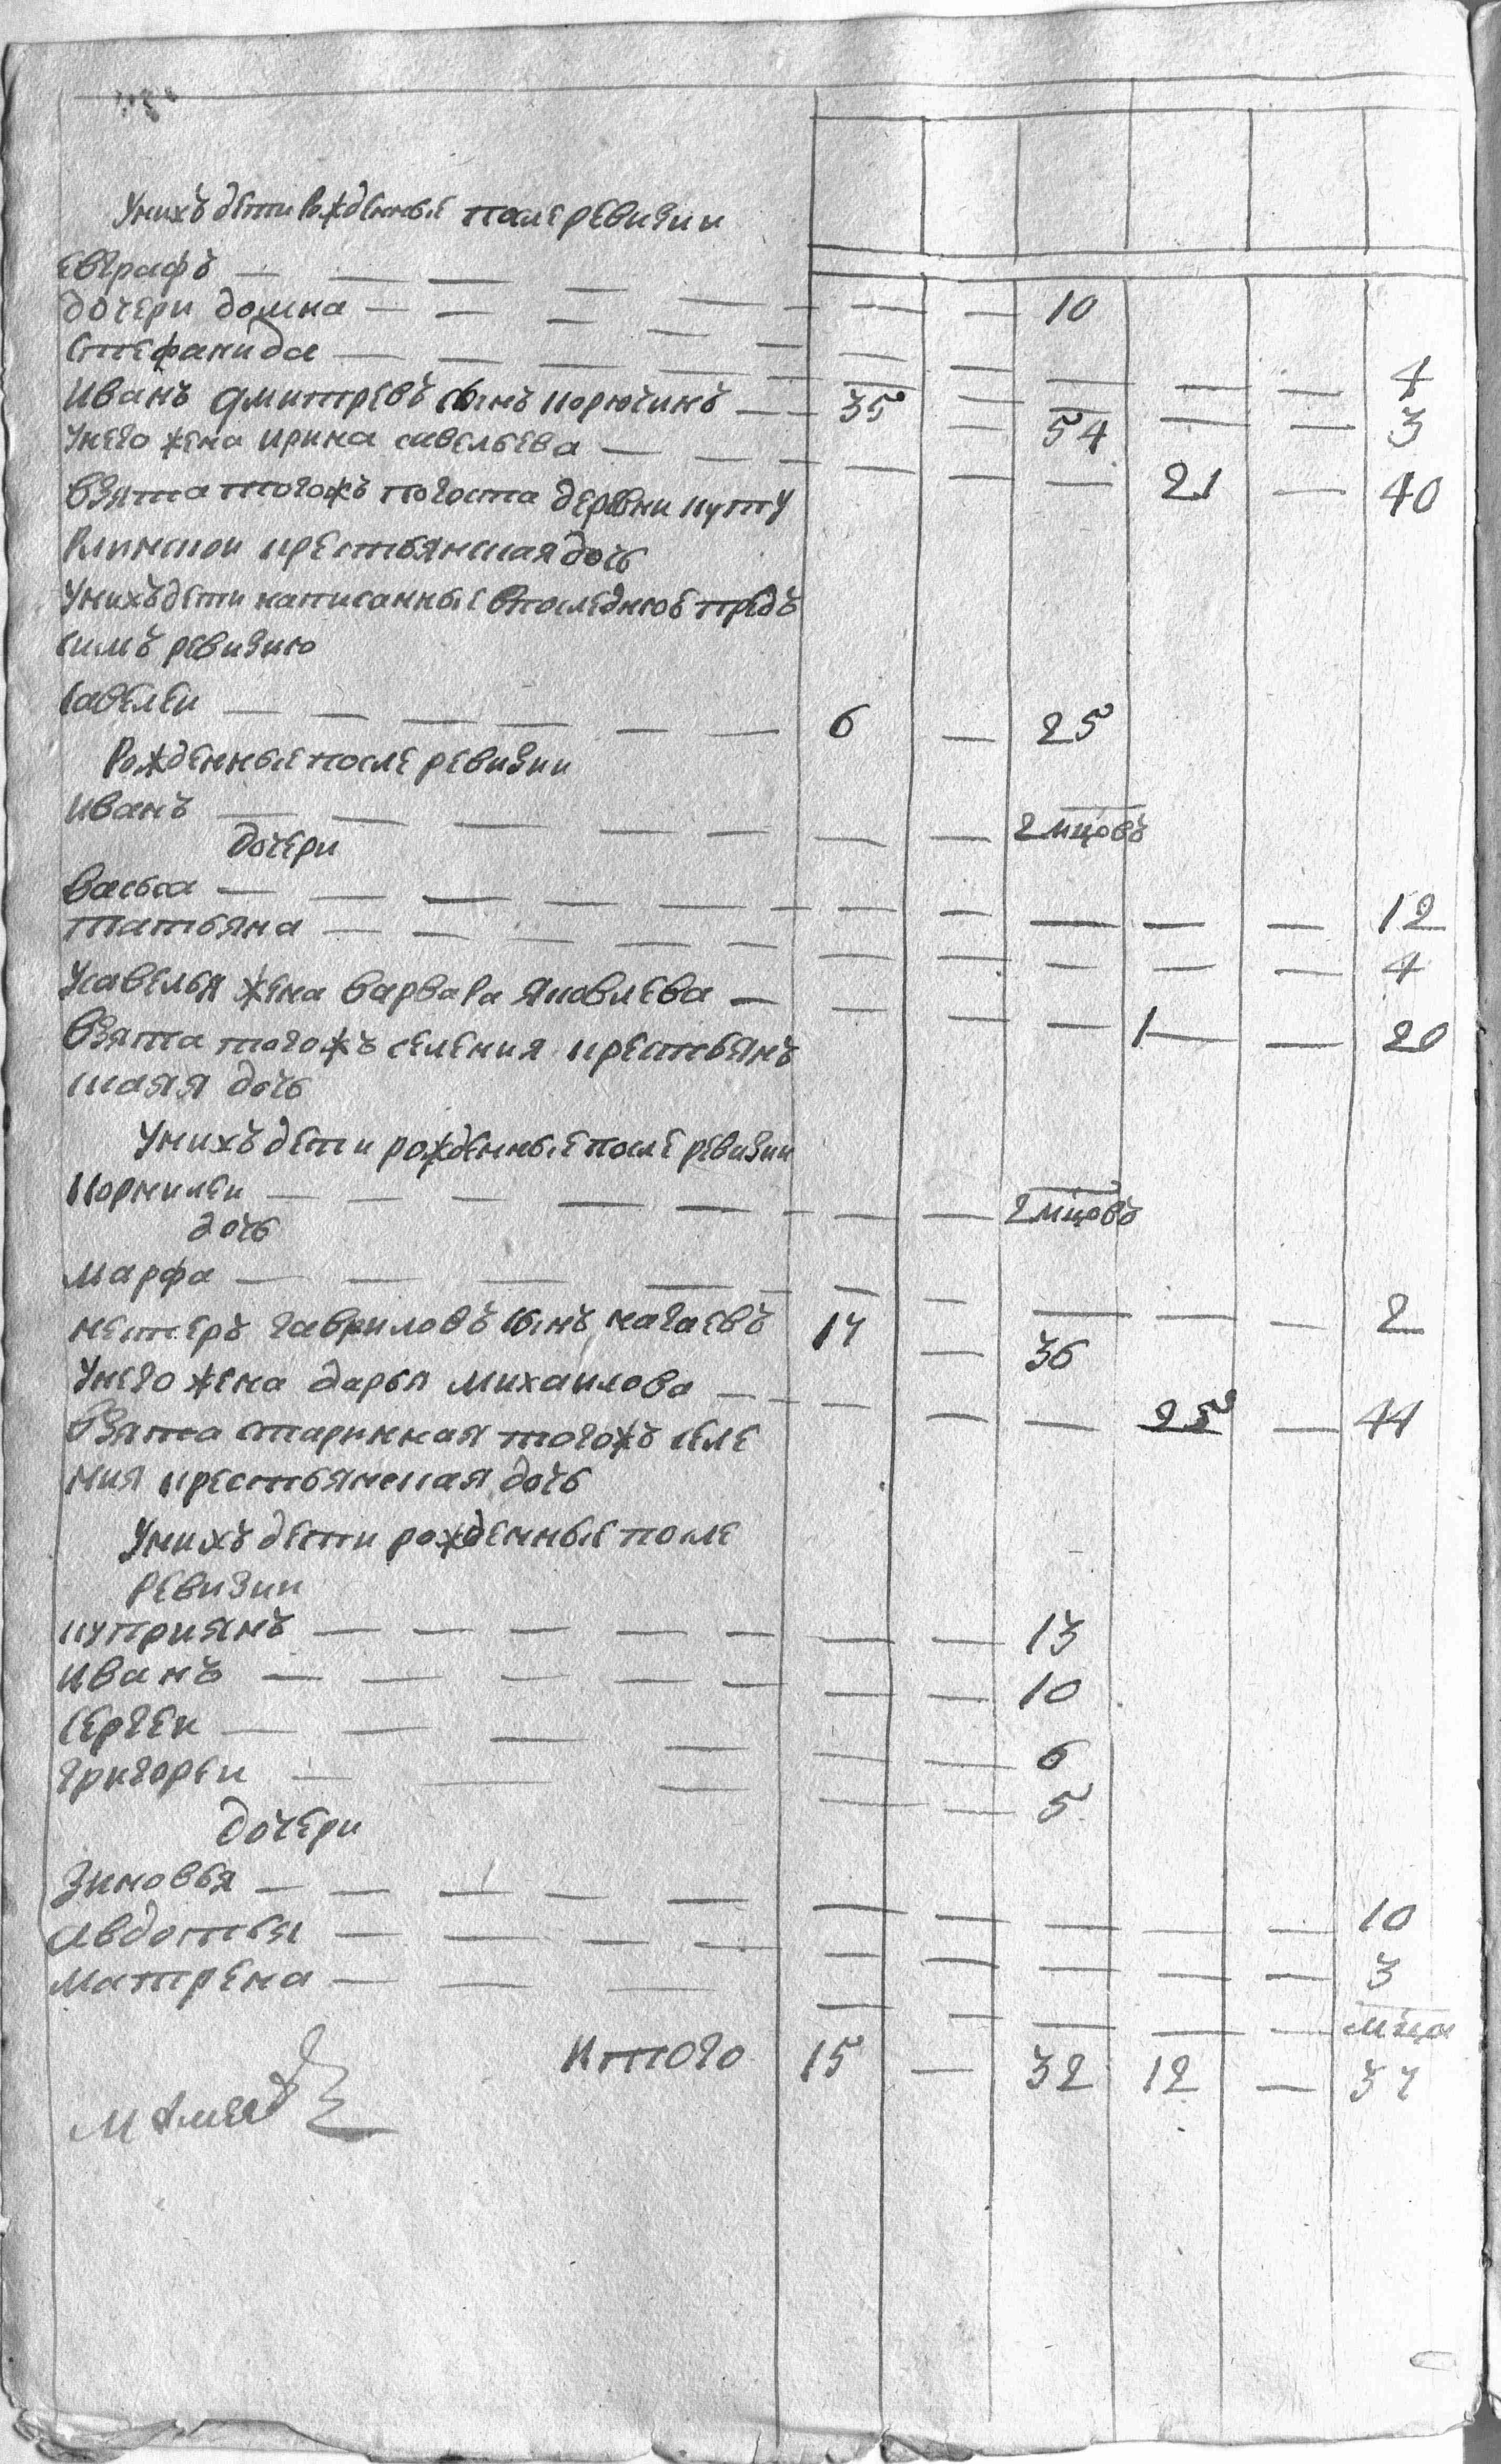 У нихъ дети рожденные после ревизии
Евграфъ — — — — — — — — 10
дочери домна — — — — — — — — — — 4
Стефанида — — — — — — — — — — 3
Иванъ дмитревъ сынъ — 35 — 54
У него жена ирина савельева — — — — — — 21 — 40
Взята тогожъ погоста деревни
крестьянская дочь
У нихъ дети написанные в последнюю предъ
симъ ревизию
Савелеи — — — — — — 6 — 25
Рожденные после ревизии
Иванъ — — — — — — — — 2 мцовъ
дочери
Васса — — — — — — — — — — — 12
татьяна — — — — — — — — — — 4
У савелья жена варвара яковлева — — — — 1 — 20
Взята тогожъ селения крестьянъ
ская дочь
У нихъ дети рожденные после ревизии
Корнилеи — — — — — — — — 2 мцовъ
дочь
марфа — — — — — — — — — — 2
нестеръ гавриловъ сынъ 17 — 36
У него жена дарья михаилова — — — — — 25 — 44
Взята старинная тогожъ селе
ния крестьянская дочь
У нихъ дети рожденные после
ревизии
куприянъ — — — — — — — 13
Иванъ — — — — — — — 10
Сергеи — — — — — — 6
григореи — — — — — 5
дочери
Зиновья — — — — — — — — — — 10
авдотья — — — — — — — — — — 3
матрена — — — — — — — — мца
Итого 15 — 32 12 — 37